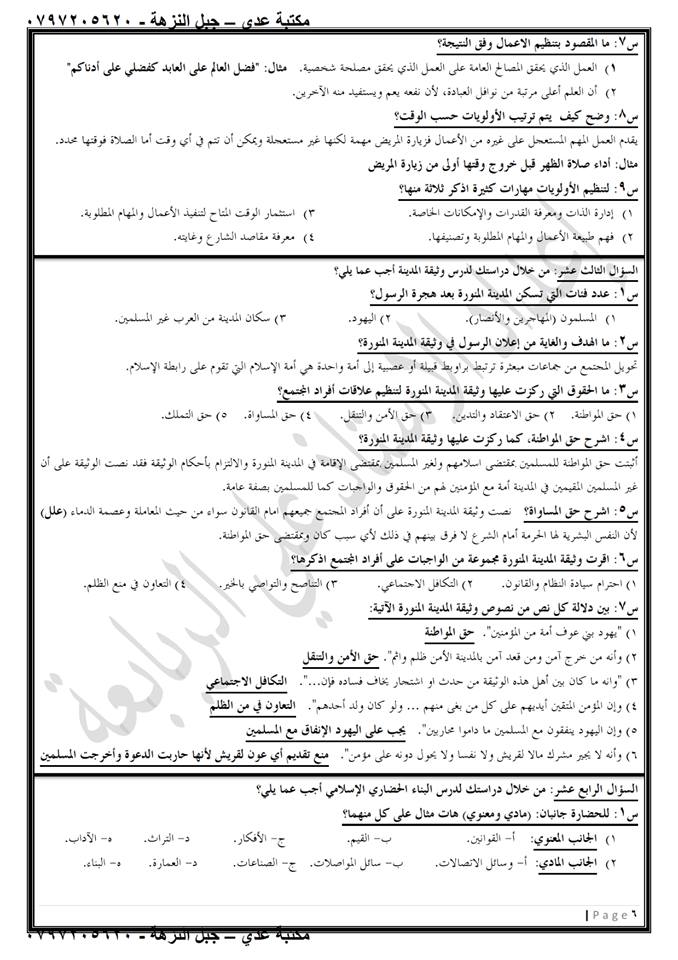 مكتبة عدي – جبل النزهة - ٠٧٩٧٢٠٥٦٢٠
س٧: ما المقصود بتنظيم الاعمال وفق النتيجة؟
١) العمل الذي يحقق المصالح العامة على العمل الذي يحقق مصلحة شخصية. مثال: "فضل العالم على العابد كفضلي على أدناكم"
٢) أن العلم أعلى مرتبة من نوافل العبادة، لأن نفعه يعم ويستفيد منه الآخرين.
س٨: وضح كيف يتم ترتيب الأولويات حسب الوقت؟
يقدم العمل المهم المستعجل على غيره من الأعمال فزيارة المريض مهمة لكنها غير مستعجلة ويمكن أن تتم في أي وقت أما الصلاة فوقتها محدد.
مثال: أداء صلاة الظهر قبل خروج وقتها أولى من زيارة المريض
س٩: لتنظيم الأولويات مهارات كثيرة اذكر ثلاثة منها؟
١) إدارة الذات ومعرفة القدرات والإمكانات الخاصة. ٣) استثمار الوقت المتاح لتنفيذ الأعمال والمهام المطلوبة.
٢) فهم طبيعة الأعمال والمهام المطلوبة وتصنيفها. ٤) معرفة مقاصد الشارع وغايته.
السؤال الثالث عشر: من خلال دراستك لدرس وثيقة المدينة أجب عما يلي؟
س١: عدد فئات التي تسكن المدينة المنورة بعد هجرة الرسول؟
١) المسلمون (المهاجرين والأنصار). ٢) اليهود. ٣) سكان المدينة من العرب غير المسلمين.
س٢: ما الهدف والغاية من إعلان الرسول في وثيقة المدينة المنورة؟
تحويل المجتمع من جماعات مبعثرة ترتبط بروابط قبيلة أو عصبية إلى أمة واحدة هي أمة الإسلام التي تقوم على رابطة الإسلام.
س٣: ما الحقوق التي ركزت عليها وثيقة المدينة المنورة لتنظيم علاقات أفراد المجتمع؟
١) حق المواطنة. ٢) حق الاعتقاد والتدين. ٣) حق الأمن والتنقل. ٤) حق المساواة. ٥) حق التملك.
س٤: اشرح حق المواطنة، كما ركزت عليها وثيقة المدينة المنورة؟
أثبتت حق المواطنة للمسلمين بمقتضى اسلامهم ولغير المسلمين بمقتضى الإقامة في المدينة المنورة والالتزام بأحكام الوثيقة فقد نصت الوثيقة على أن
غير المسلمين المقيمين في المدينة أمة مع المؤمنين لهم من الحقوق والواجبات كما للمسلمين بصفة عامة.
س٥: اشرح حق المساواة؟ نصت وثيقة المدينة المنورة على أن أفراد المجتمع جميعهم امام القانون سواء من حيث المعاملة وعصمة الدماء (علل)
لأن النفس البشرية لها الحرمة أمام الشرع لا فرق بينهم في ذلك لأي سبب كان وبمقتضى حق المواطنة.
س٦: اقرت وثيقة المدينة المنورة مجموعة من الواجبات على أفراد المجتمع اذكرها؟
١) احترام سيادة النظام والقانون. ٢) التكافل الاجتماعي. ٣) التناصح والتواصي بالخير. ٤) التعاون في منع الظلم.
س٧: بين دلالة كل نص من نصوص وثيقة المدينة المنورة الآتية:
١) "يهود بني عوف أمة من المؤمنين". حق المواطنة
٢) وأنه من خرج آمن ومن قعد آمن بالمدينة الأمن ظلم واثم". حق الأمن والتنقل
٣) "وانه ما كان بين أهل هذه الوثيقة من حدث او اشتجار يخاف فساده فإن...". التكافل الاجتماعي
٤) وإن المؤمن المتقين أيديهم على كل من بغى منهم ... ولو كان ولد أحدهم". التعاون في من الظلم
٥) وإن اليهود ينفقون مع المسلمين ما داموا محاربين". يجب على اليهود الإنفاق مع المسلمين
٦) وأنه لا يجير مشرك مالا لقريش ولا نفسا ولا يحول دونه على مؤمن". منع تقديم أي عون لقريش لأنها حاربت الدعوة وأخرجت المسلمين
السؤال الرابع عشر: من خلال دراستك لدرس البناء الحضاري الإسلامي أجب عما يلي؟
س١: للحضارة جانبان: (مادي ومعنوي) هات مثال على كل منهما؟
١) الجانب المعنوي: أ- القوانين. ب- القيم. ج- الأفكار. د- التراث. ه- الآداب.
٢) الجانب المادي: أ- وسائل الاتصالات. ب- سائل المواصلات. ج- الصناعات. د- العمارة. ه- البناء.
٦ Page |
مكتبة عدي – جبل النزهة - ٠٧٩٧٢٠٥٦٢٠